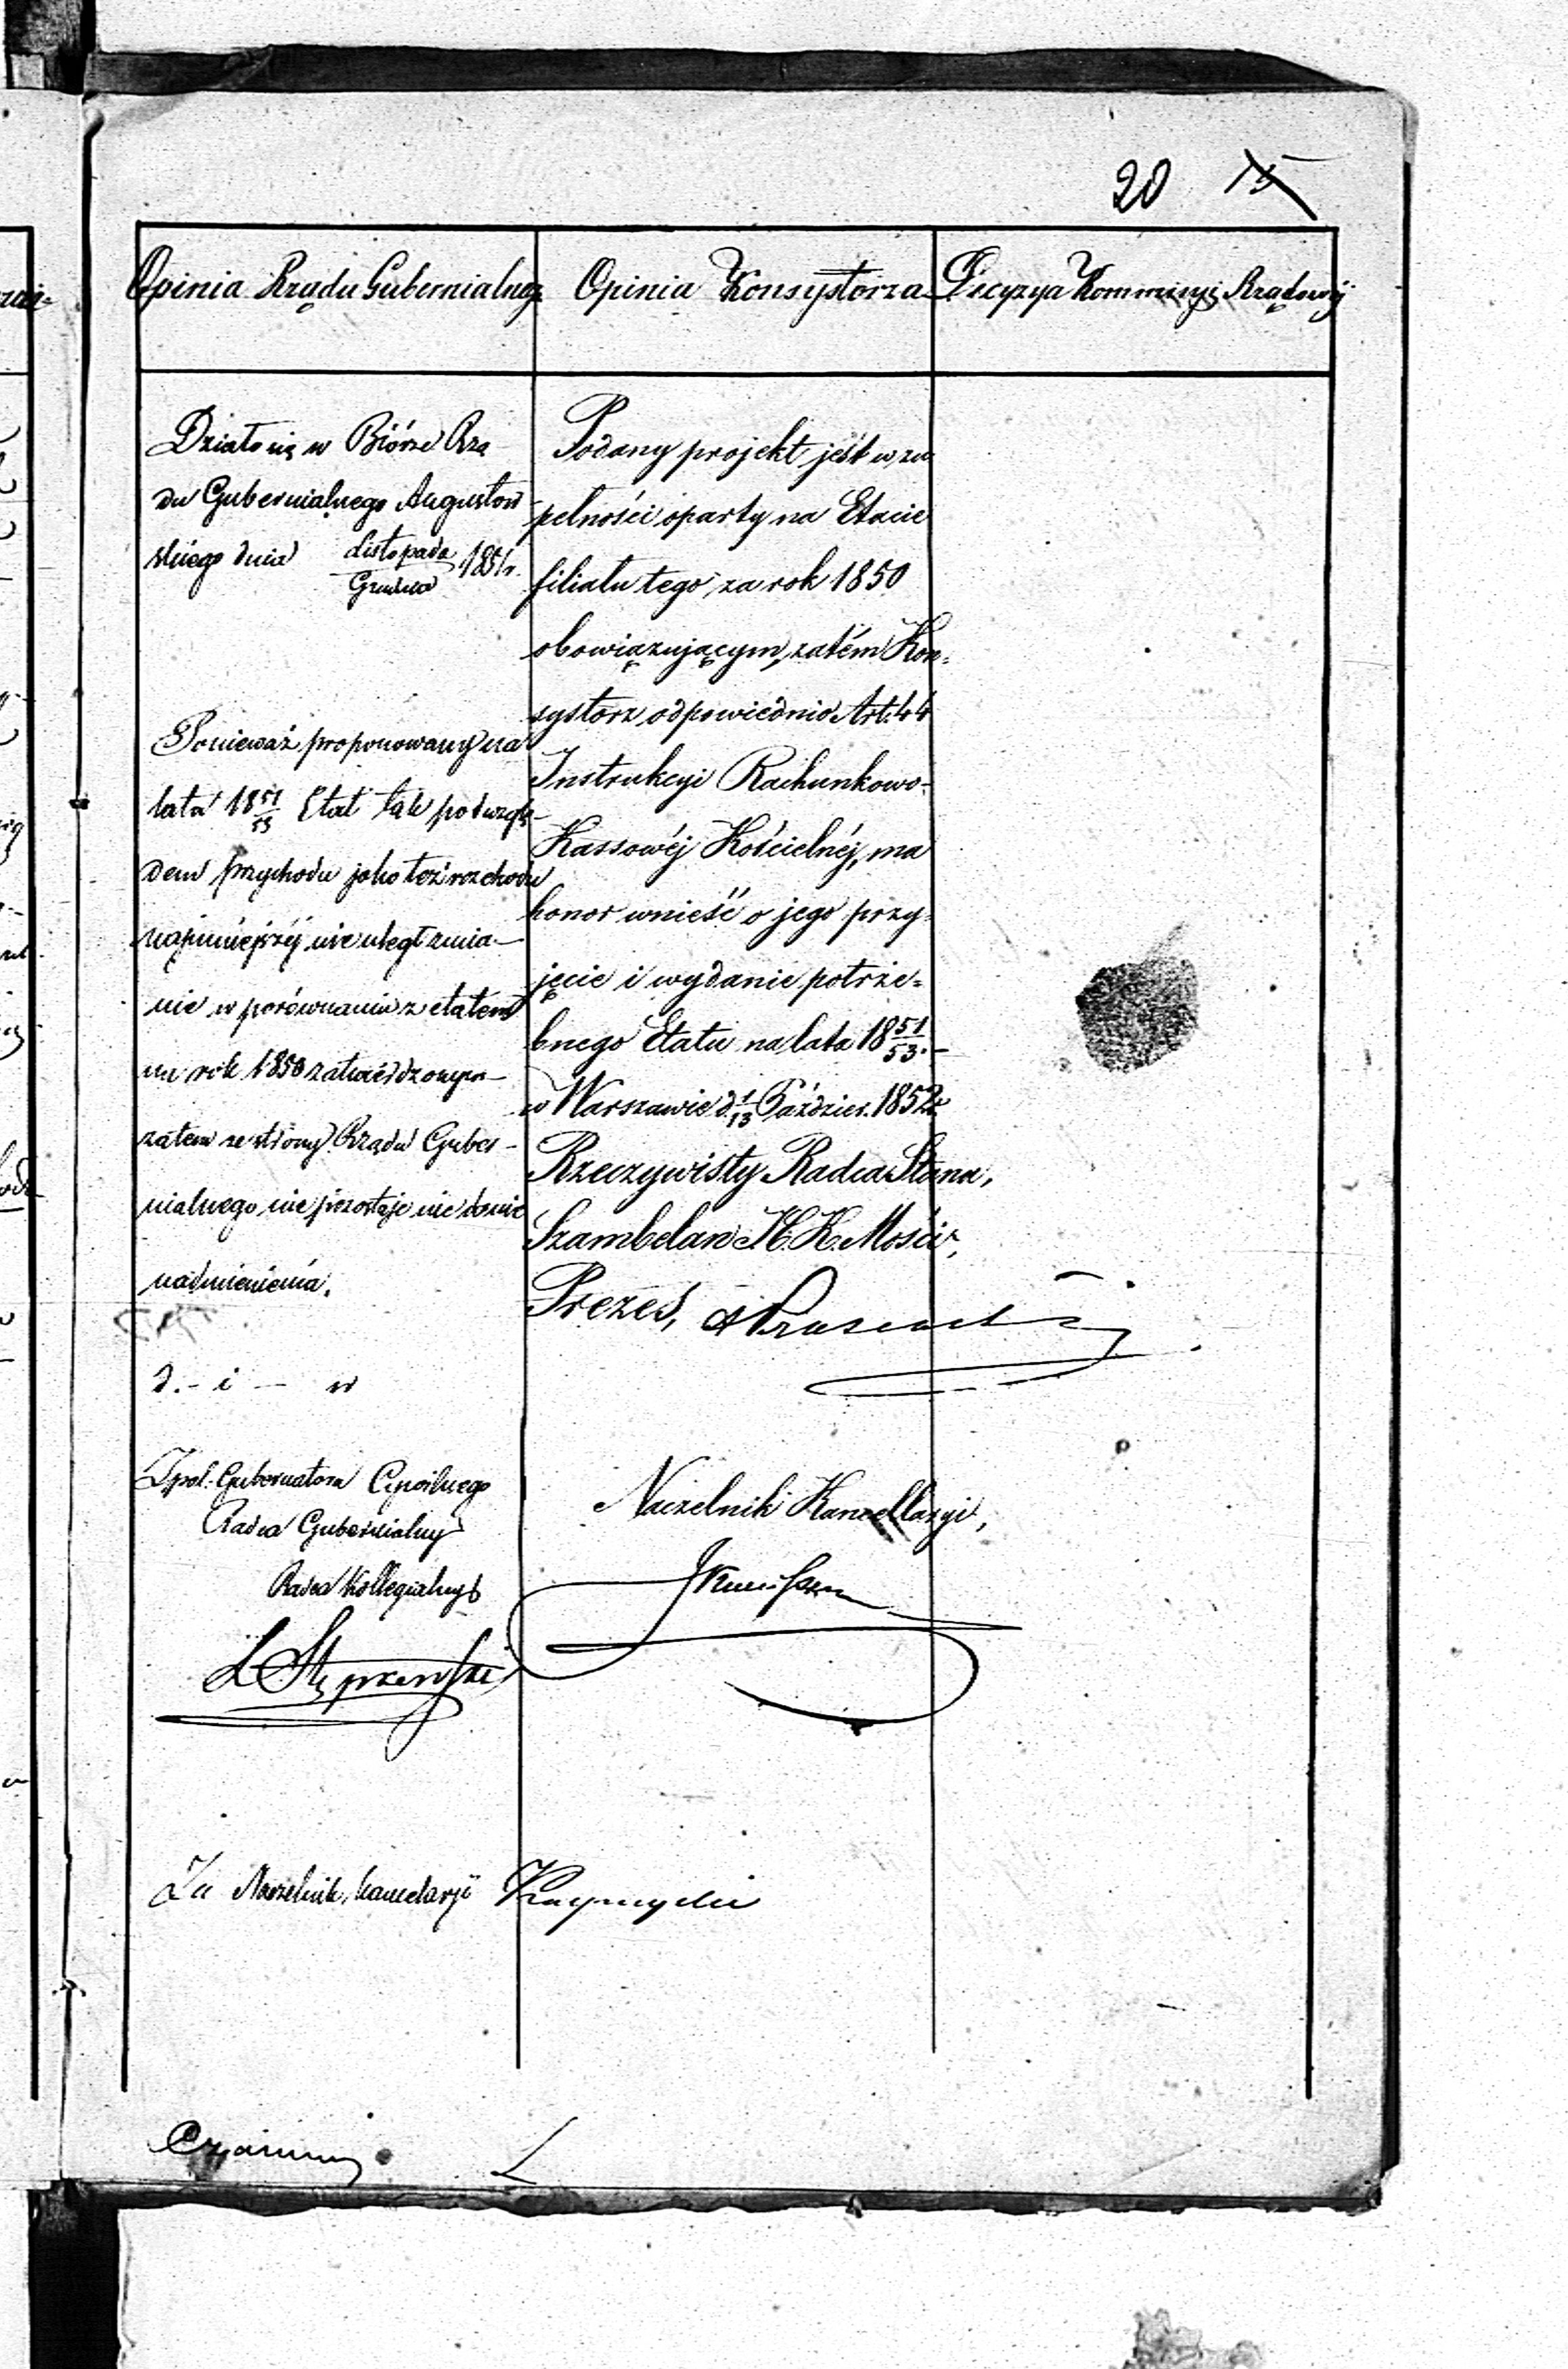 20 15
Opinia Rządu Gubernialneg
Działo się w Biórze Rzą
du Gubernialnego Augustow
skiego dnia Listopada/Grudnia 1851 r.
Ponieważ proponowany na
lata 18 51/53 Etat tak pod wzglę-
dem przychodu jako też rozchodu
najmniejszéj nie uległ zmia-
nie w porównaniu z etatem
na rok 1850 zatwierdzonym
zatem ze strony Rządu Guber-
nialnego nie pozostaje nic do
nadmienienia.
d. - i - w
Gubernatora Cywilnego
Radca Gubernialny
Radca Kollegialny
L Stępkowski
Za Naczelnik Kancelarji
Opinia Konsystorza
Podany projekt jest w zu
pełności oparty na Etacie
filialu tego za rok 1850
obowiązującym, zatém Kon=
systorz odpowiednio Art: 44
Instrukcyi Rachunkowo-
Kassowéj Kościelnéj, ma
honor wnieść o jego przy=
jęcie i wydanie potrze=
bnego Etatu na lata 18 51/53.-
w Warszawie d. 1/13 Paździer. 1852 r.
Rzeczywisty Radca Stanu,
Szambelan J. K. Mości,
Prezes,
Naczelnik Kancellaryi,
Decyzya Kommissyi Rządowéj